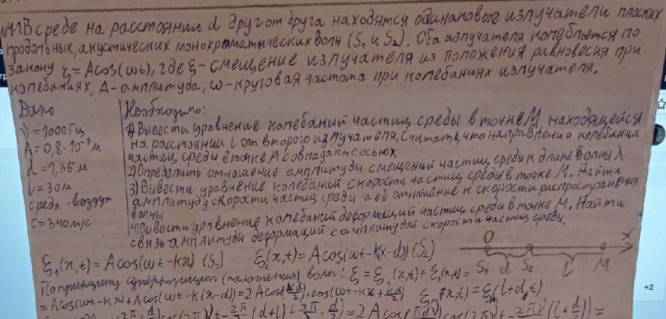 №4.1. В среде на расстоянии d друг от друга находятся одинаковые излучатели плоских
продольных, акустических монохроматических волн (S₁ и S₂). Оба излучателя колеблются по
закону ξ=Acos(ωt), где ξ-смещение излучателя из положения равновесия при
колебаниях, A-амплитуда, ω-круговая частота при колебаниях излучателя.
Дано
ν=1000Гц
A=0,8·10⁻³м
d=1,35м
l=30м
среда-воздух
c=340м/с
Необходимо:
1) Вывести уравнение колебаний частиц среды в точке M, находящейся
на расстоянии l от второго излучателя, считать, что направления колебания
частиц среды в точке M совпадают с осью x
2) Определить отношение амплитуды смещений частиц среды к длине волны λ
3) Вывести уравнение колебаний скорости частиц среды в точке M. Найти
амплитуду скорости частиц среды и её отношение к скорости распространения
волны
4) Вывести уравнение колебаний деформаций частиц среды в точке M. Найти
связь амплитуды деформаций с амплитудой скорости частиц среды
O x
S₁ d S₂ l M
ξ₁(x,t)=Acos(ωt-kx) (S₁) ξ₂(x,t)=Acos(ωt-k(x-d)) (S₂)
По принципу суперпозиции (наложения) волн: ξ=ξ₁(x,t)+ξ₂(x,t)=
=Acos(ωt-kx)+Acos(ωt-k(x-d))=2Acos(kd/2)·cos(ωt-kx+kd/2) (x,t)=ξ(l+d,t)